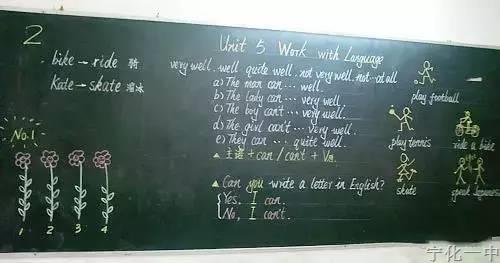 2
bike → ride 骑
Kate → skate 溜冰
No.1
1 2 3 4
Unit 5 Work with Language
very well. well quite well. not very well. not…at all
a) The man can … well.
b) The lady can … very well.
c) The boy can't … very well.
d) The girl can't … very well.
e) They can … quite well.
▲ 主语 + can / can't + V原
▲ Can you write a letter in English?
Yes, I can.
No, I can't.
play football
play tennis
ride a bike
skate
speak Japanese
宁化一中